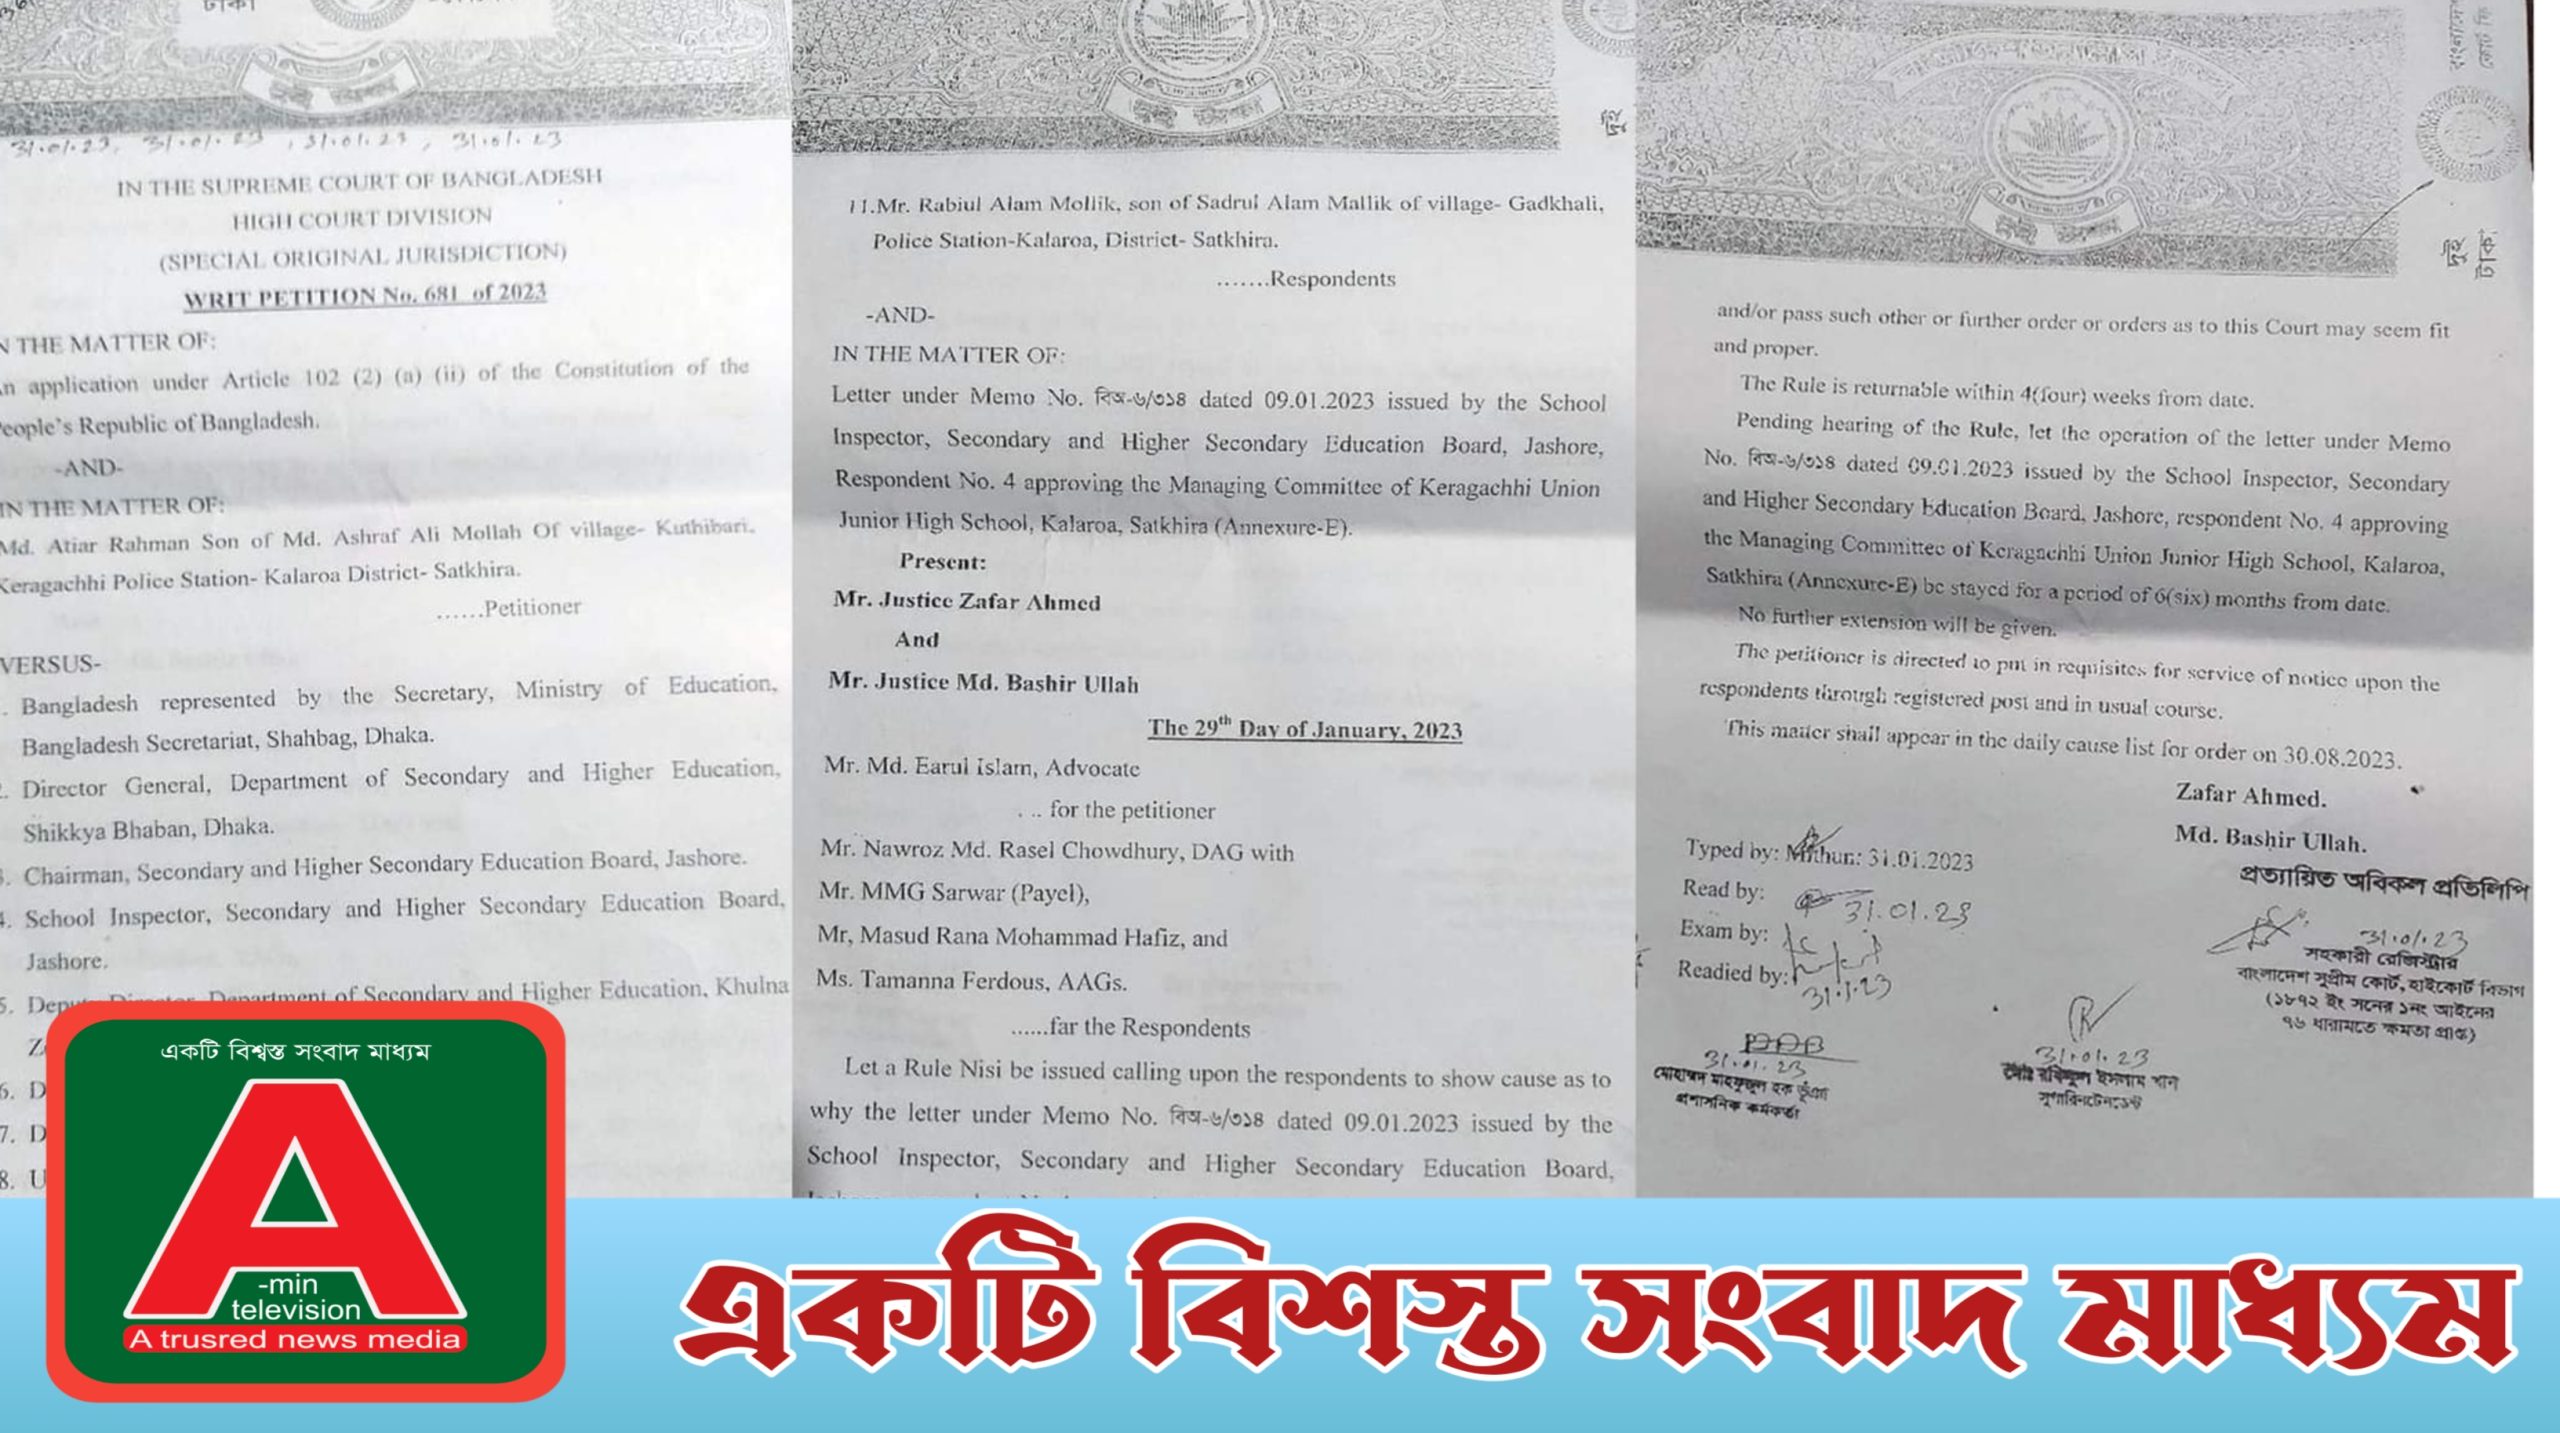 ঢাকা
31.01.23, 31.01.23, 31.01.23, 31.01.23
IN THE SUPREME COURT OF BANGLADESH
HIGH COURT DIVISION
(SPECIAL ORIGINAL JURISDICTION)
WRIT PETITION No. 681 of 2023
N THE MATTER OF:
n application under Article 102 (2) (a) (ii) of the Constitution of the
eople's Republic of Bangladesh.
-AND-
IN THE MATTER OF:
Md. Atiar Rahman Son of Md. Ashraf Ali Mollah Of village- Kuthibari,
Keragachhi Police Station- Kalaroa District- Satkhira.
......Petitioner
VERSUS-
. Bangladesh represented by the Secretary, Ministry of Education,
Bangladesh Secretariat, Shahbag, Dhaka.
. Director General, Department of Secondary and Higher Education,
Shikkya Bhaban, Dhaka.
. Chairman, Secondary and Higher Secondary Education Board, Jashore.
4. School Inspector, Secondary and Higher Secondary Education Board,
Jashore.
5. Deputy Director, Department of Secondary and Higher Education, Khulna
Z
6. D
7. D
8. U
দুই
11.Mr. Rabiul Alam Mollik, son of Sadrul Alam Mallik of village- Gadkhali,
Police Station-Kalaroa, District- Satkhira.
.......Respondents
-AND-
IN THE MATTER OF:
Letter under Memo No. বিঅ-৬/৩১৪ dated 09.01.2023 issued by the School
Inspector, Secondary and Higher Secondary Education Board, Jashore,
Respondent No. 4 approving the Managing Committee of Keragachhi Union
Junior High School, Kalaroa, Satkhira (Annexure-E).
Present:
Mr. Justice Zafar Ahmed
And
Mr. Justice Md. Bashir Ullah
The 29th Day of January, 2023
Mr. Md. Earul Islam, Advocate
. .. for the petitioner
Mr. Nawroz Md. Rasel Chowdhury, DAG with
Mr. MMG Sarwar (Payel),
Mr, Masud Rana Mohammad Hafiz, and
Ms. Tamanna Ferdous, AAGs.
......far the Respondents
Let a Rule Nisi be issued calling upon the respondents to show cause as to
why the letter under Memo No. বিঅ-৬/৩১৪ dated 09.01.2023 issued by the
School Inspector, Secondary and Higher Secondary Education Board,
দুই
টাকা
and/or pass such other or further order or orders as to this Court may seem fit
and proper.
The Rule is returnable within 4(four) weeks from date.
Pending hearing of the Rule, let the operation of the letter under Memo
No. বিঅ-৬/৩১৪ dated 09.01.2023 issued by the School Inspector, Secondary
and Higher Secondary Education Board, Jashore, respondent No. 4 approving
the Managing Committee of Keragachhi Union Junior High School, Kalaroa,
Satkhira (Annexure-E) be stayed for a period of 6(six) months from date.
No further extension will be given.
The petitioner is directed to put in requisites for service of notice upon the
respondents through registered post and in usual course.
This matter shall appear in the daily cause list for order on 30.08.2023.
Zafar Ahmed.
Md. Bashir Ullah.
Typed by: Mithun: 31.01.2023
Read by: 31.01.23
Exam by:
Readied by: 31.1.23
প্রত্যায়িত অবিকল প্রতিলিপি
31.01.23
সহকারী রেজিস্ট্রার
বাংলাদেশ সুপ্রীম কোর্ট, হাইকোর্ট বিভাগ
(১৮৭২ ইং সনের ১নং আইনের
৭৬ ধারামতে ক্ষমতা প্রাপ্ত)
31.01.23
মোহাম্মদ মাহফুজুল হক ভূঁঞা
প্রশাসনিক কর্মকর্তা
31.01.23
মোঃ রবিউল ইসলাম খান
সুপারিনটেনডেন্ট
একটি বিশ্বস্ত সংবাদ মাধ্যম
A
-min
television
A trusred news media
একটি বিশস্ত সংবাদ মাধ্যম